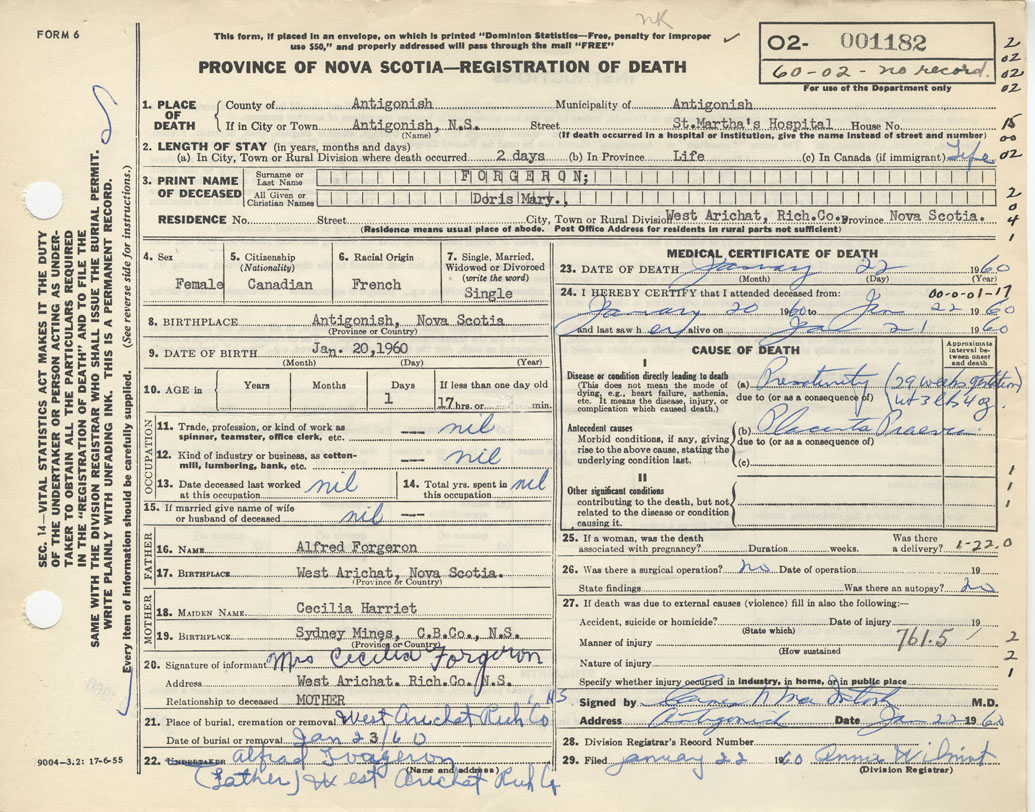 NR
FORM 6
This form, if placed in an envelope, on which is printed "Dominion Statistics—Free, penalty for improper
use $50," and properly addressed will pass through the mail "FREE"
O2- 001182
60-02- no record.
For use of the Department only
PROVINCE OF NOVA SCOTIA—REGISTRATION OF DEATH
2
02
02
02
1. PLACE OF DEATH
County of Antigonish Municipality of Antigonish
If in City or Town Antigonish, N.S. Street St.Martha's Hospital House No.
(Name) (If death occurred in a hospital or institution, give the name instead of street and number)
15
00
02
2. LENGTH OF STAY (in years, months and days)
(a) In City, Town or Rural Division where death occurred 2 days (b) In Province Life (c) In Canada (if immigrant) Life
3. PRINT NAME OF DECEASED
Surname or Last Name FORGERON;
All Given or Christian Names Doris Mary.,
RESIDENCE No. Street City, Town or Rural Division West Arichat, Rich.Co. Province Nova Scotia.
(Residence means usual place of abode. Post Office Address for residents in rural parts not sufficient)
2
0
4
1
4. Sex Female
5. Citizenship (Nationality) Canadian
6. Racial Origin French
7. Single, Married, Widowed or Divorced (write the word) Single
8. BIRTHPLACE Antigonish, Nova Scotia
(Province or Country)
9. DATE OF BIRTH Jan. 20,1960
(Month) (Day) (Year)
10. AGE in Years Months Days If less than one day old
1 17 hrs. or min.
OCCUPATION
11. Trade, profession, or kind of work as spinner, teamster, office clerk, etc. --- nil
12. Kind of industry or business, as cotton-mill, lumbering, bank, etc. --- nil
13. Date deceased last worked at this occupation nil
14. Total yrs. spent in this occupation nil
15. If married give name of wife or husband of deceased nil
FATHER
16. NAME Alfred Forgeron
17. BIRTHPLACE West Arichat, Nova Scotia.
(Province or Country)
MOTHER
18. MAIDEN NAME Cecilia Harriet
19. BIRTHPLACE Sydney Mines, C.B.Co., N.S.
(Province or Country)
20. Signature of informant Mrs Cecilia Forgeron
Address West Arichat. Rich.Co. N.S.
Relationship to deceased MOTHER
21. Place of burial, cremation or removal West Arichat Rich Co NS
Date of burial or removal Jan 23/60
22. UNDERTAKER Alfred Forgeron
(Name and address)
(Father) West Arichat Rich Co
9004—3.2: 17-6-55
MEDICAL CERTIFICATE OF DEATH
23. DATE OF DEATH January 22 1960
(Month) (Day) (Year)
24. I HEREBY CERTIFY that I attended deceased from: 00-0-01-17
January 20 1960 to Jan 22 1960
and last saw her alive on Jan 21 1960
CAUSE OF DEATH
Approximate interval between onset and death
I
Disease or condition directly leading to death
(This does not mean the mode of dying, e.g., heart failure, asthenia, etc. It means the disease, injury, or complication which caused death.)
(a) Prematurity (29 weeks gestation
due to (or as a consequence of) wt 3 lbs 4 oz.
Antecedent causes
Morbid conditions, if any, giving rise to the above cause, stating the underlying condition last.
(b) Placenta Praevia
due to (or as a consequence of)
(c)
II
Other significant conditions
contributing to the death, but not related to the disease or condition causing it.
1
1
1
1
25. If a woman, was the death associated with pregnancy? Duration weeks. Was there a delivery? 1-22.0
26. Was there a surgical operation? no Date of operation 19
State findings Was there an autopsy? no
27. If death was due to external causes (violence) fill in also the following:—
Accident, suicide or homicide? Date of injury 19
(State which)
Manner of injury 761.5
(How sustained
Nature of injury
Specify whether injury occurred in industry, in home, or in public place
2
2
1
Signed by M.D.
Address Antigonish Date Jan 22 1960
28. Division Registrar's Record Number
29. Filed January 22 1960 Annie Wilmot
(Division Registrar)
SEC. 14—VITAL STATISTICS ACT MAKES IT THE DUTY
OF THE UNDERTAKER OR PERSON ACTING AS UNDER-
TAKER TO OBTAIN ALL THE PARTICULARS REQUIRED
IN THE "REGISTRATION OF DEATH" AND TO FILE THE
SAME WITH THE DIVISION REGISTRAR WHO SHALL ISSUE THE BURIAL PERMIT.
WRITE PLAINLY WITH UNFADING INK. THIS IS A PERMANENT RECORD.
Every item of information should be carefully supplied. (See reverse side for instructions.)